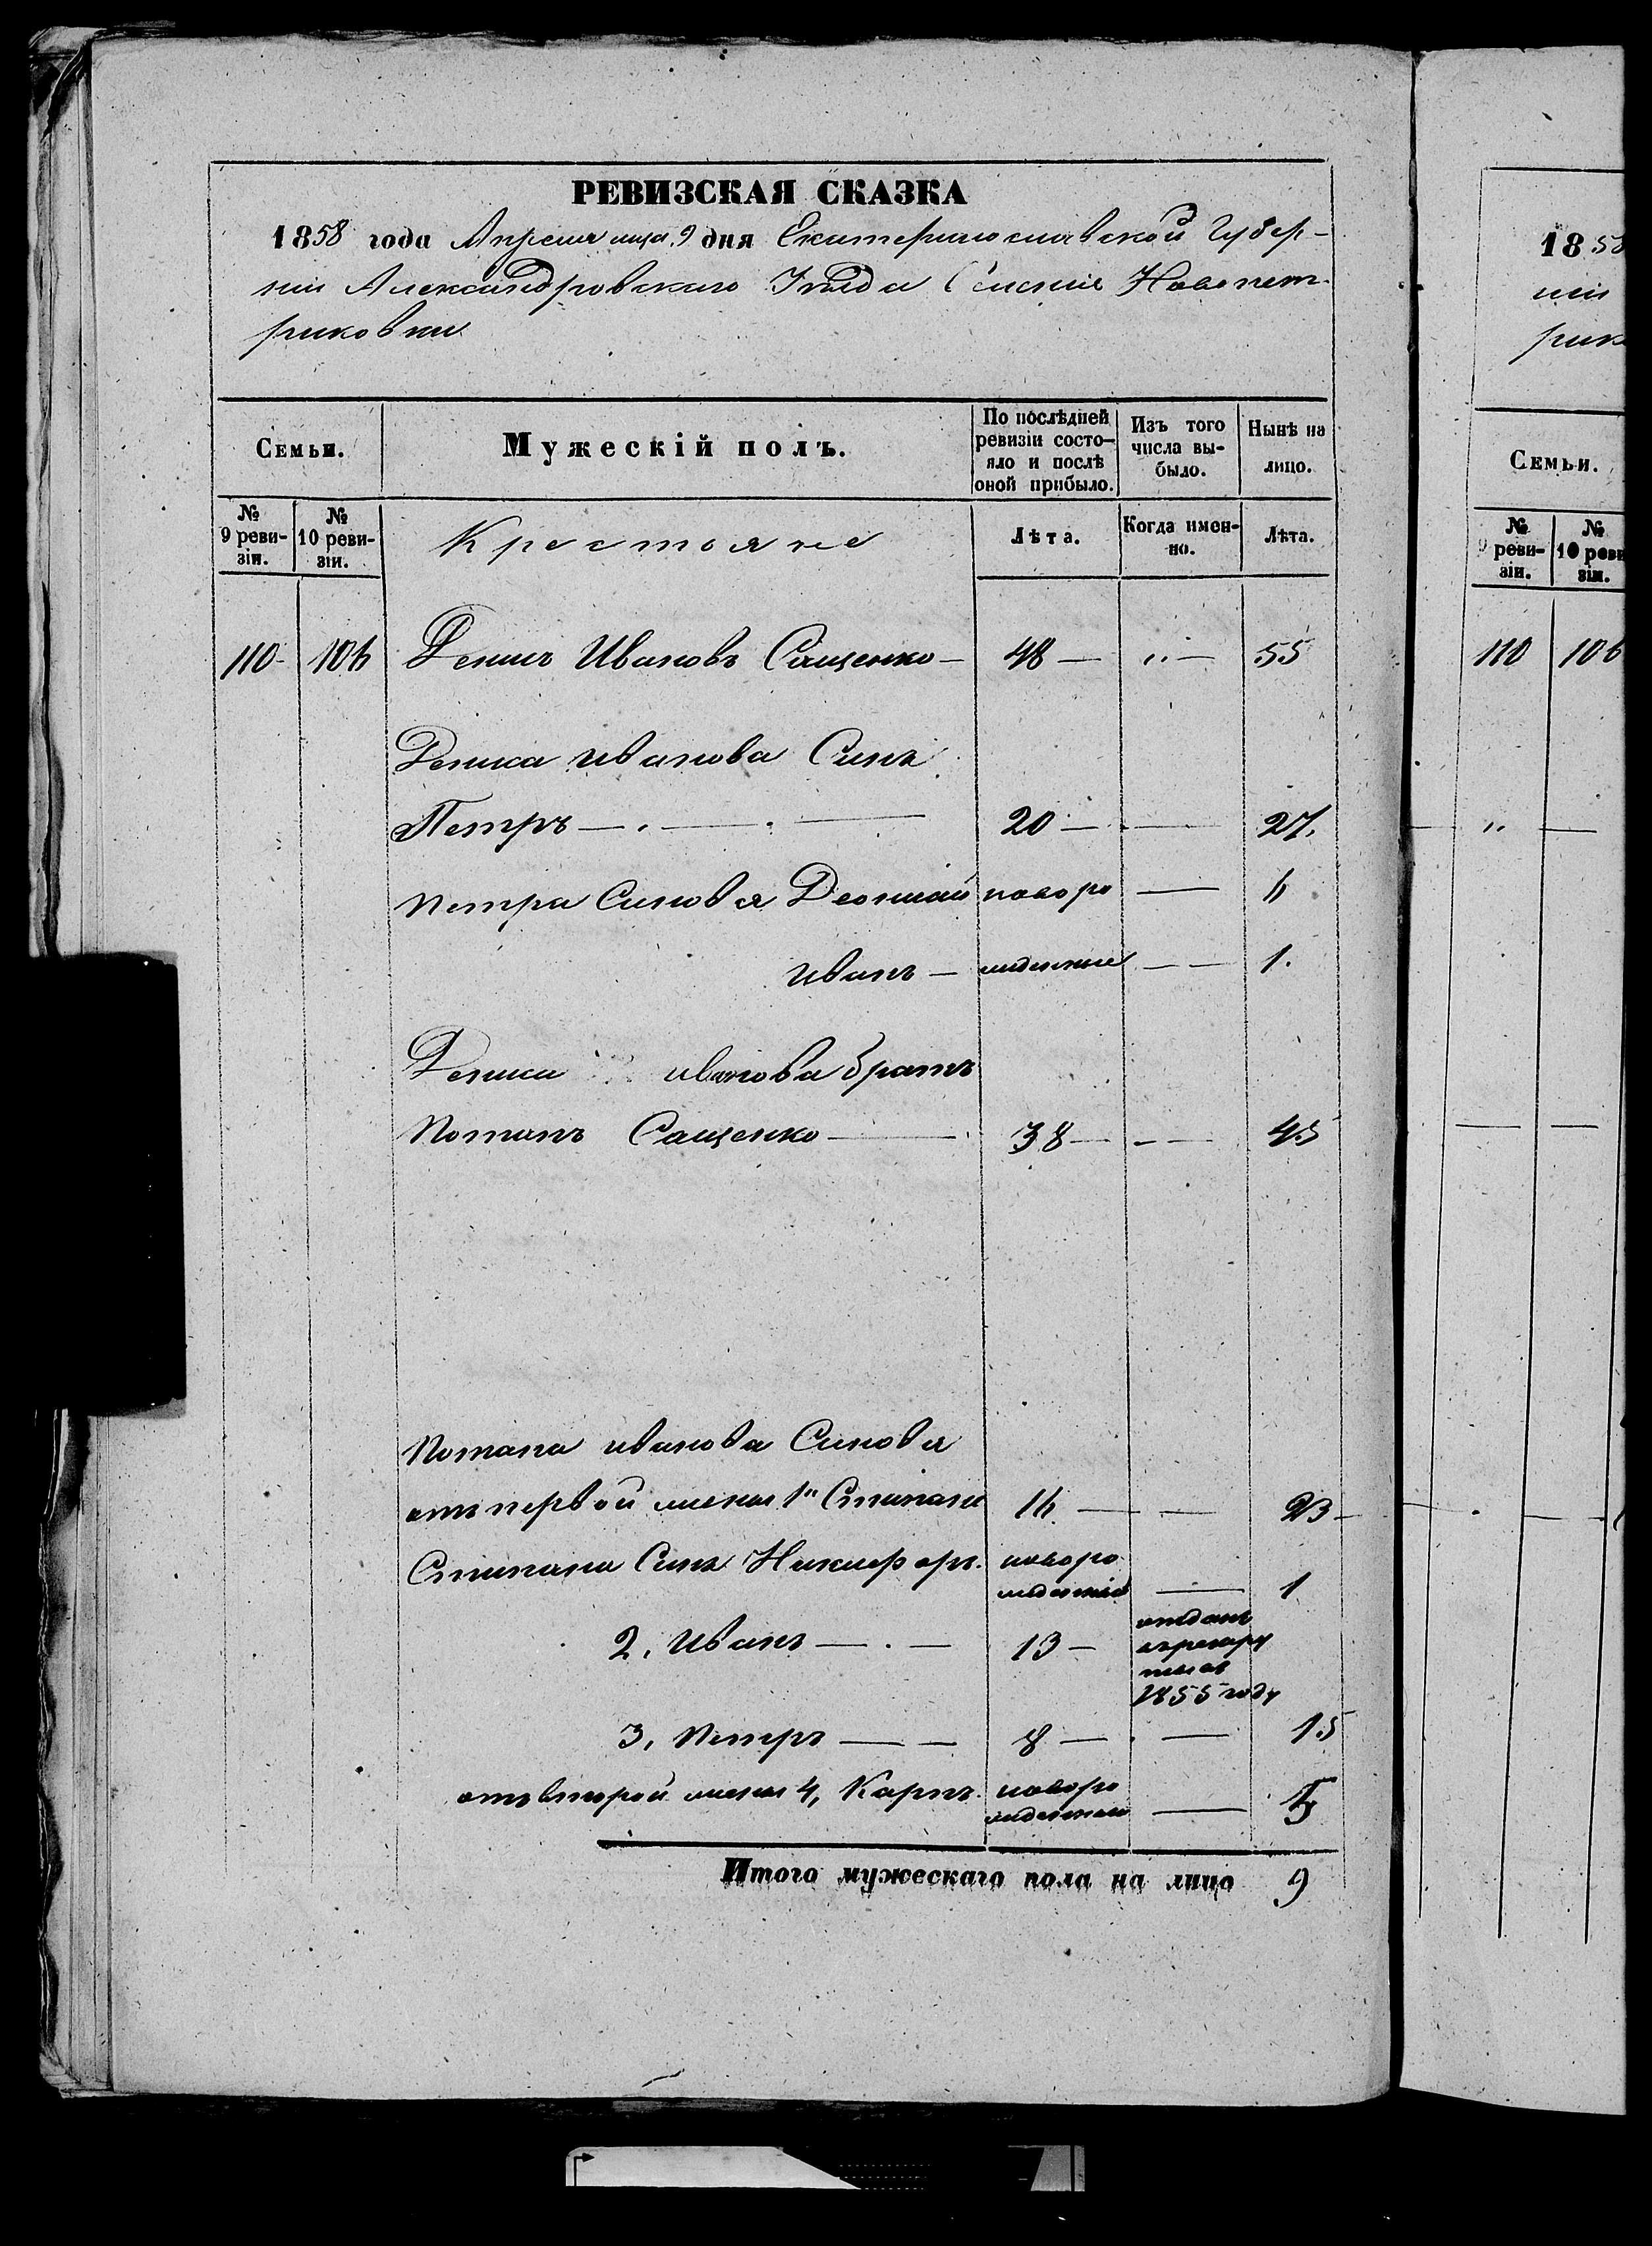 РЕВИЗСКАЯ СКАЗКА
1858 года Апреля мца 9 дня Екатеринославской Губер-
ніи Александровскаго Уѣзда Селенія Новопет-
риковки
Семьи. Мужескій полъ. По послѣдней ревизіи состо-яло и послѣ оной прибыло. Изъ того числа вы-было. Нынѣ на лицо.
№ 9 реви-зіи. № 10 реви-зіи. Крестьяне Лѣта. Когда имен-но. Лѣта.
110 106 Денис Ивановъ Сащенко 48 — „ — 55
Дениса Иванова Синъ
Петръ — 20 — 27.
Петра Синовя новоро — 6
Иванъ — жденние — 1.
Дениса иванова братъ
Потапъ Сащенко — 38 — 45
Потапа иванова Синовя
отъ первой жены 1й Стипанъ 16 — 23
Стипана Синъ Никифоръ. новоро
жденний — 1
2, Иванъ — 13 — отданъ
в рекру
ты в
1855 году
3, Петръ — 8 — 15
отъ второй жены 4, Карпъ. новоро
жденний — 5
Итого мужескаго пола на лицо 9
1858
ніи
рик
Семьи.
№ 9 реви-зіи. № 10 реви зіи.
110 106
„ —